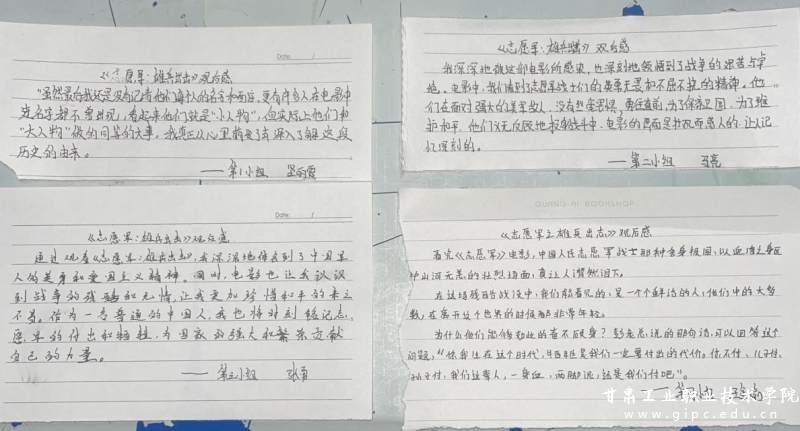 Date:
《志愿军:雄兵出击》观后感
"虽然最后我还是没有记清他们每个人的名字和面容,更有许多人在电影中
连名字都不曾出现,看起来他们就是"小人物",但实际上他们和
"大人物"做的同等的大事。我真正从心里萌发了去深入了解这段
历史的由来。
——第1小组
《志愿军:雄兵出击》观后感
我深深地被这部电影所感染,也深刻地领悟到了战争的艰苦与卓
绝。电影中,我们看到了志愿军战士们的英勇无畏和不屈不挠的精神。他
们在面对强大的美军敌人,没有丝毫畏惧,勇往直前,为了保家卫国,为了维
护和平,他们义无反顾地投身战斗中,电影的画面是壮观而感人的,让人记
忆深刻的。
——第二小组 马亮
Date:
《志愿军:雄兵出击》观后感
通过观看《志愿军:雄兵出击》,我深深地体会到了中国军
人的英勇和爱国主义精神。同时,电影也让我认识
到战争的残酷和无情,让我更加珍惜和平的来之
不易。作为一名普通的中国人,我也将时刻铭记志
愿军的付出和牺牲,为国家的强大和繁荣贡献
自己的力量。
——第三小组 张勇
GUANG-AI BOOKSHOP
《志愿军之雄兵出击》观后感
看完《志愿军》电影,中国人民志愿军战士那种舍身报国,以血洒之身躯
护山河无恙的壮烈场面,真让人潸然泪下。
在这场残酷战役中,我们能看见的,是一个个鲜活的人,他们中的大多
数,在离开这个世界的时候都非常年轻。
为什么他们能够如此的奋不顾身?彭老总说的那句话,可以回答这个
问题,"你我生在这个时代,牺牲是我们一定要付出的代价。你不付,儿子付,
孙子付,我们这辈人,一身血,两脚泥,这是我们付吧"。
甘肃工业职业技术学院
www.gipc.edu.cn